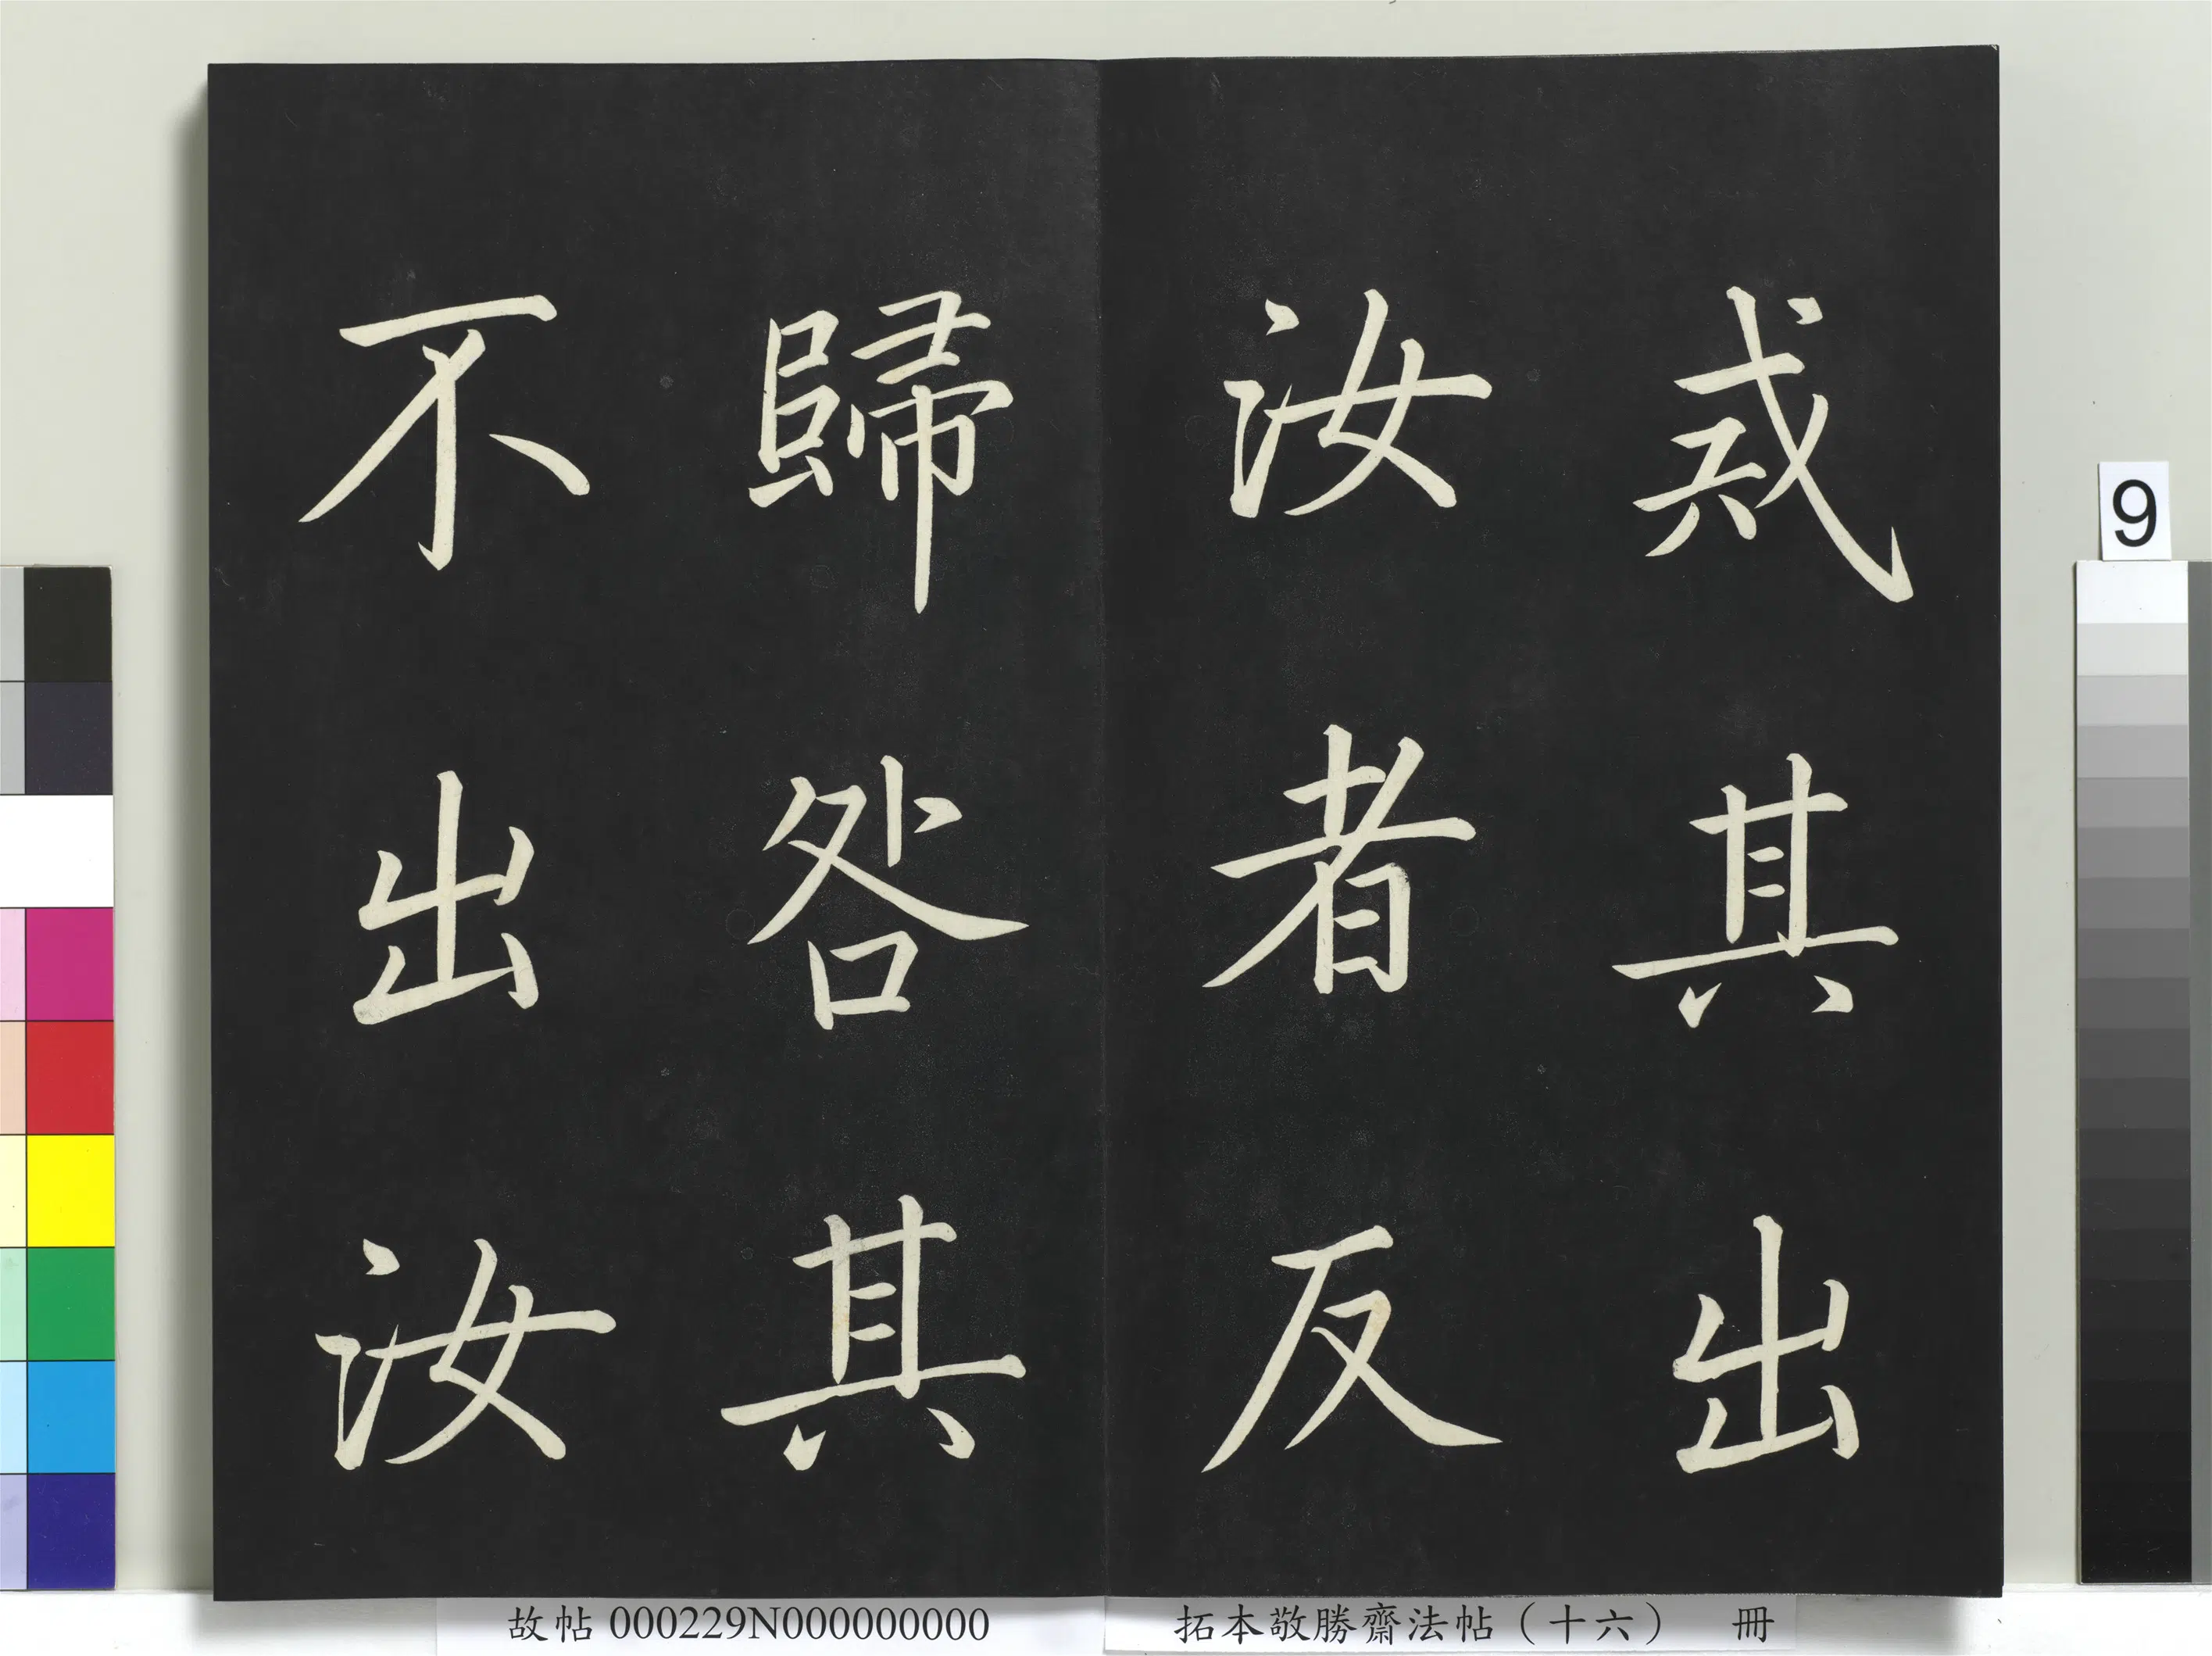 戒其出
汝者反
歸咎其
不出汝
9
故帖 000229N000000000
拓本敬勝齋法帖（十六） 冊